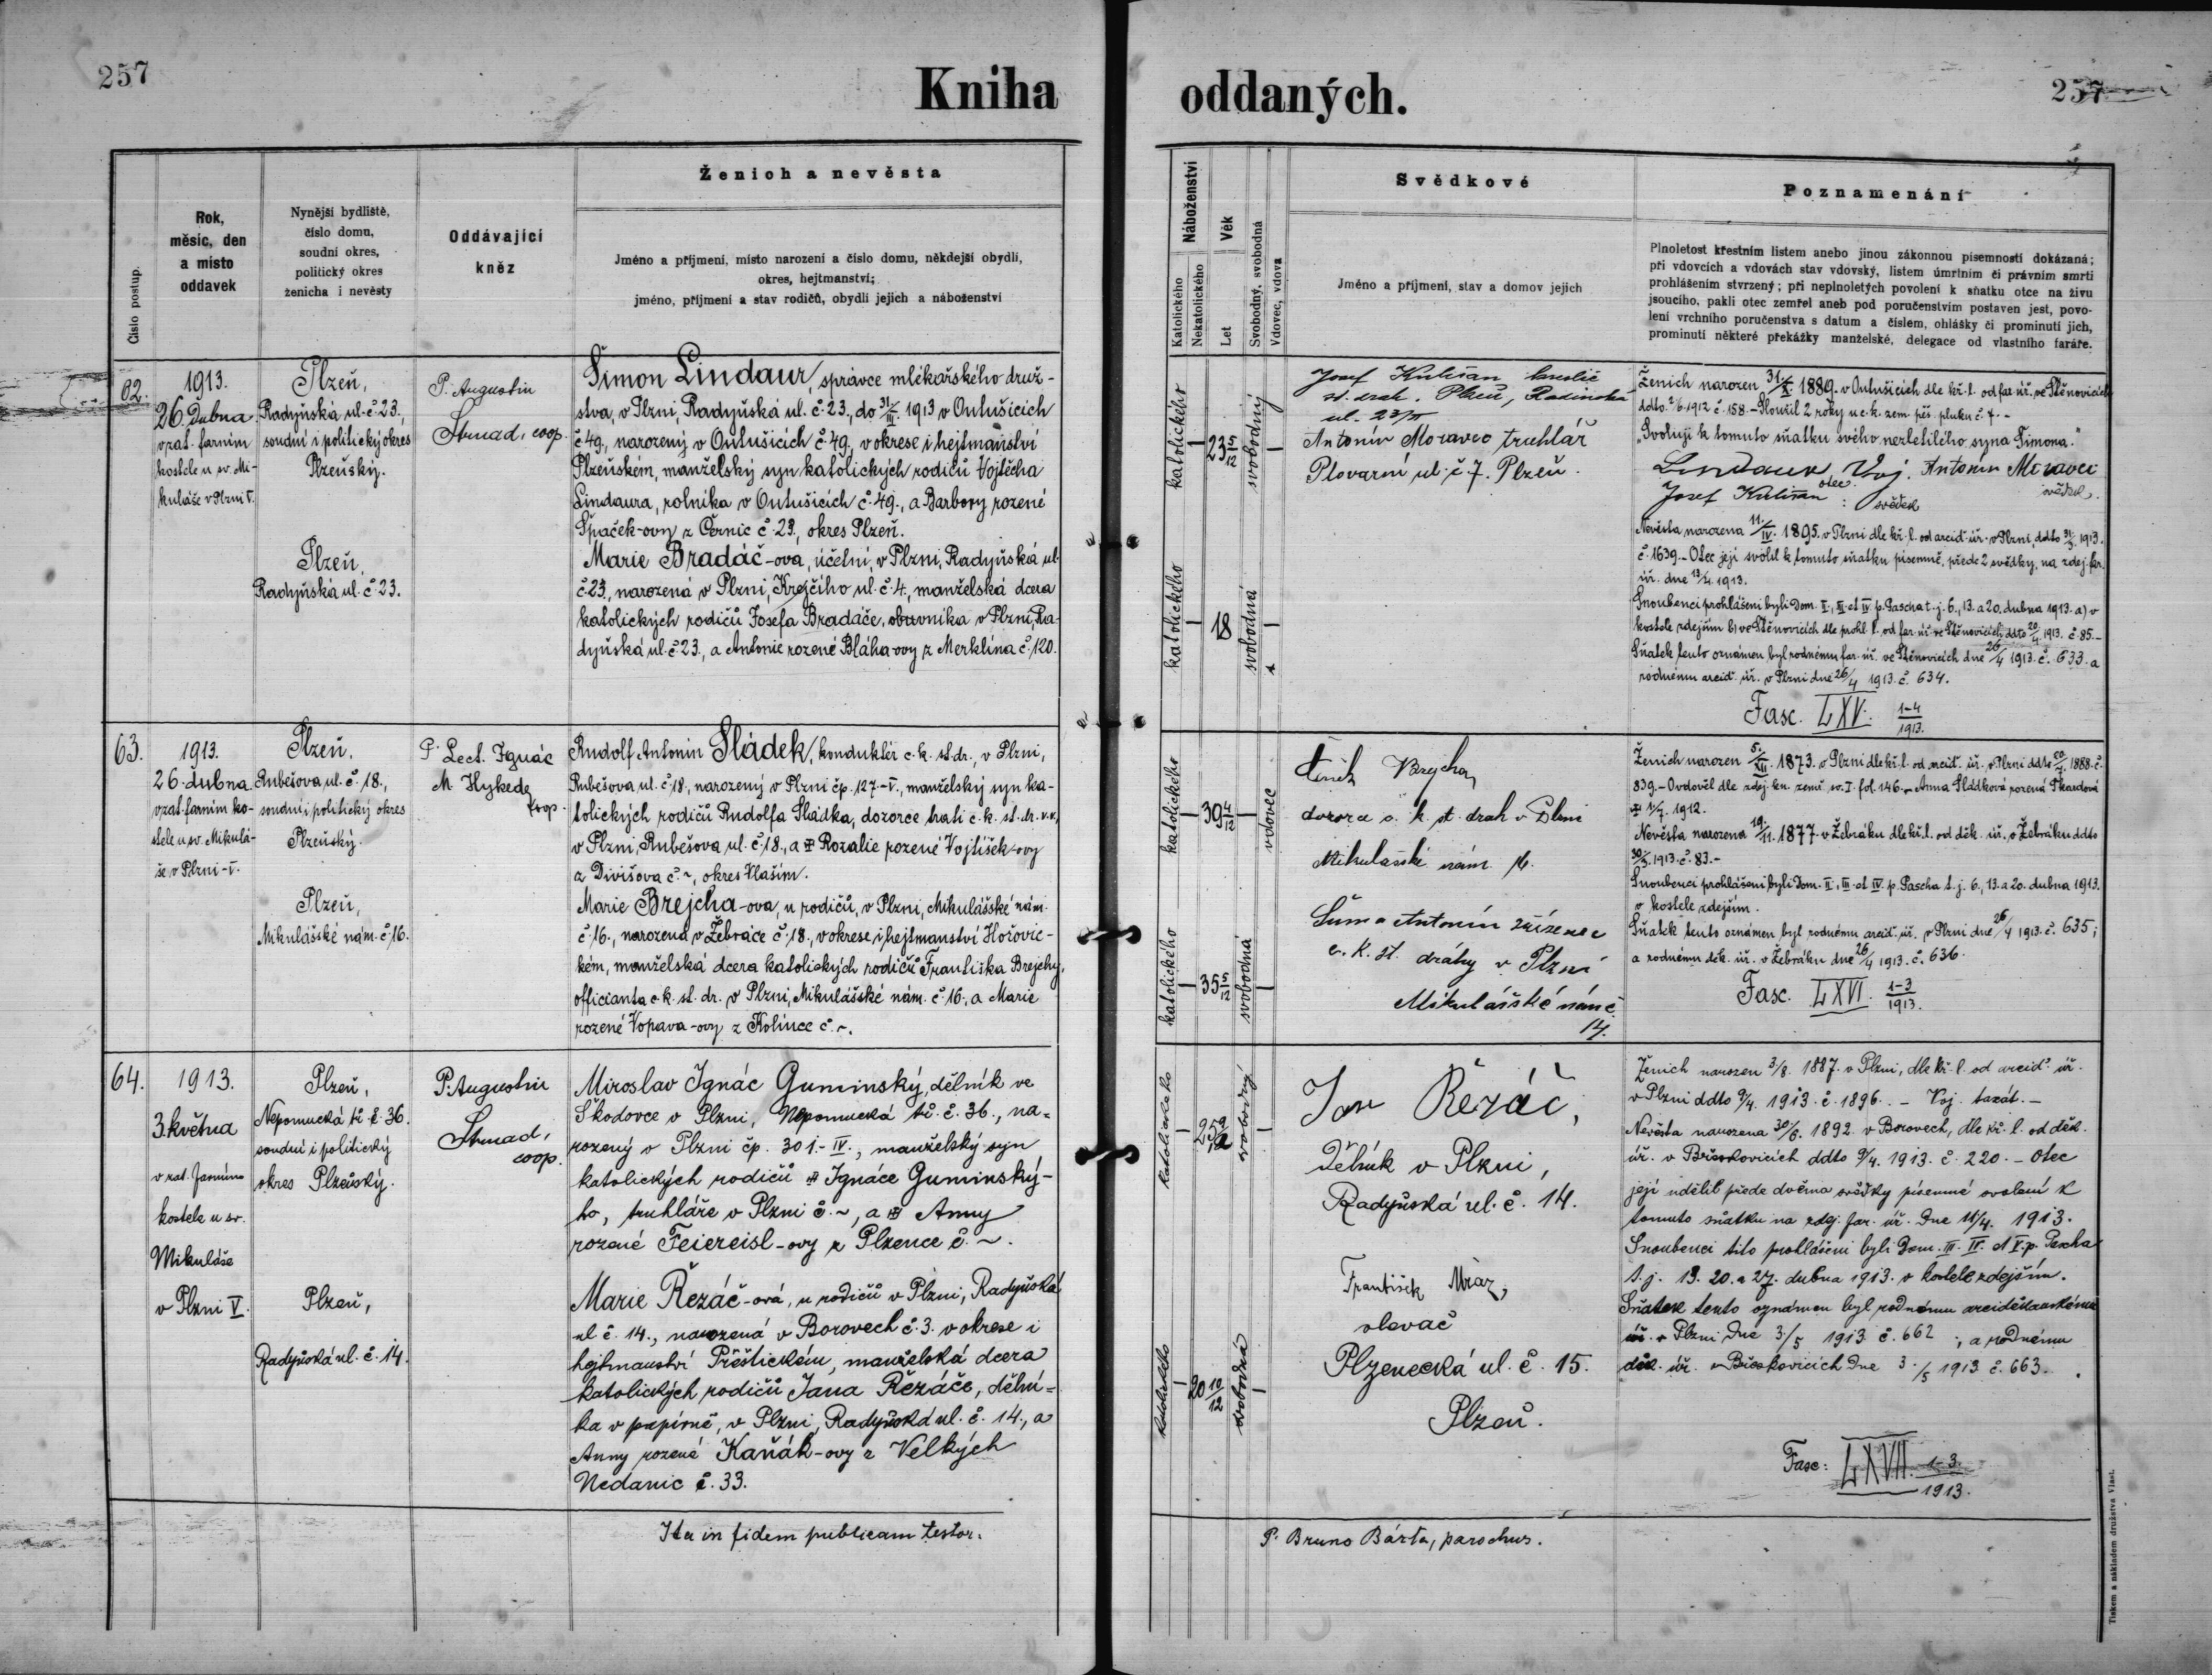 257
Kniha
oddaných.
257
Číslo postup.
Rok,
měsíc, den
a místo
oddavek
Nynější bydliště,
číslo domu,
soudní okres,
politický okres
ženicha i nevěsty
Oddávající
kněz
Ženich a nevěsta
Jméno a příjmení, místo narození a číslo domu, někdejší obydlí,
okres, hejtmanství;
jméno, příjmení a stav rodičů, obydlí jejich a náboženství
Náboženství
Katolického
Nekatolického
Věk
Let
Svobodný, svobodná
Vdovec, vdova
Svědkové
Jméno a příjmení, stav a domov jejich
Poznamenání
Plnoletost křestním listem anebo jinou zákonnou písemností dokázaná;
při vdovcích a vdovách stav vdovský, listem úmrtním či právním smrti
prohlášením stvrzený; při neplnoletých povolení k sňatku otce na živu
jsoucího, pakli otec zemřel aneb pod poručenstvím postaven jest, povo-
lení vrchního poručenstva s datum a číslem, ohlášky či prominutí jich,
prominutí některé překážky manželské, delegace od vlastního faráře.
62.
1913.
26. dubna
v zat. farním
kostele u sv. Mi-
kuláše v Plzni V.
Plzeň,
Radyňská ul. č. 23.,
soudní i politický okres
Plzeňský.
Plzeň,
Radyňská ul. č. 23.
P. Augustin
Strnad, coop.
Šimon Lindaur, správce mlékařského druž-
stva, v Plzni, Radyňská ul. č. 23., do 31/III. 1913 v Outušicích
č. 49., narozený v Outušicích č. 49., v okrese i hejtmanství
Plzeňském, manželský syn katolických rodičů Vojtěcha
Lindaura, rolníka v Outušicích č. 49., a Barbory rozené
Špaček-ovy z Černic č. 23., okres Plzeň.
Marie Bradáč-ova, účetní, v Plzni, Radyňská ul.
č. 23., narozená v Plzni, Krejčího ul. č. 4., manželská dcera
katolických rodičů Josefa Bradáče, obuvníka v Plzni, Ra-
dyňská ul. č. 23., a Antonie rozené Bláha-ovy z Merklína č. 120.
katolického
23 5/12
svobodný
katolického
18
svobodná
Josef Kulišan
st. drah. Plzeň, Radinská
ul. 23/II
Antonín Moravec truhlář
Plovarní ul. č. 7. Plzeň.
Ženich narozen 31./X. 1889. v Outušicích dle kř. l. od far. úř. ve Štěnovicích
ddto. 2/6. 1912 č. 158. – Sloužil 2 roky u c. k. zem. pěš. pluku č. 7. –
„Svoluji k tomuto sňatku svého nezletilého syna Šimona.“
Lindaur Voj. Antonín Moravec
otec. svědek.
Josef Kulišan : svědek
Nevěsta narozena 11./IV. 1895. v Plzni dle kř. l. od arcid. úř. v Plzni, ddto 31/3. 1913.
č. 1639. – Otec její svolil k tomuto sňatku písemně, přede 2 svědky, na zdej. far.
úř. dne 13/4. 1913.
Snoubenci prohlášeni byli Dom. II., III. et IV. p. Pascha t. j. 6., 13. a 20. dubna 1913. a) v
kostele zdejším b) ve Štěnovicích dle prohl. l. od far. úř. ve Štěnovicích ddto 20/4. 1913. č. 85. –
Sňatek tento oznámen byl rodnému far. úř. ve Štěnovicích dne 26/4 1913. č. 633. a
rodnému arcid. úř. v Plzni dne 26/4 1913. č. 634.
Fasc. LXV. 1-4/1913.
63.
1913.
26. dubna
v zat. farním ko-
stele u sv. Mikulá-
še v Plzni – V.
Plzeň,
Rubešova ul. č. 18.,
soudní i politický okres
Plzeňský.
Plzeň,
Mikulášské nám. č. 16.
P. Lect. Ignác
M. Hykede
coop.
Rudolf Antonín Sládek, konduktér c. k. st. dr., v Plzni,
Rubešova ul. č. 18., narozený v Plzni čp. 127 – V., manželský syn ka-
tolických rodičů Rudolfa Sládka, dozorce trati c. k. st. dr. v. v.,
v Plzni, Rubešova ul. č. 18., a Rozalie rozené Vojtíšek-ovy
z Divišova č. ~, okres Vlašim.
Marie Brejcha-ova, u rodičů, v Plzni, Mikulášské nám.
č. 16., narozená v Žebráce č. 18., v okrese i hejtmanství Hořovic-
kém, manželská dcera katolických rodičů Františka Brejchy,
officianta c. k. st. dr. v Plzni, Mikulášské nám. č. 16., a Marie
rozené Vopava-ovy z Kolince č. ~.
katolického
39 4/12
vdovec
katolického
35 5/12
svobodná
Brejcha
dozorce c. k. st. drah v Plzni
Mikulašské nám. 16.
Šuma Antonín zřízenec
c. k. st. dráhy v Plzni
Mikulášské nám. č.
14.
Ženich narozen 5./XII. 1873. v Plzni dle kř. l. od arcid. úř. v Plzni ddto 20/7. 1888. č.
839. – Ovdověl dle zdej. kn. zemř. sv. I. fol. 146. – Anna Sládková rozená Tkardová
1/7. 1912.
Nevěsta narozena 19./11. 1877 v Žebráku dle kř. l. od děk. úř. v Žebráku ddto
30/3. 1913. č. 83. –
Snoubenci prohlášeni byli Dom. II., III. et IV. p. Pascha t. j. 6., 13. a 20. dubna 1913.
v kostele zdejším.
Sňatek tento oznámen byl rodnému arcid. úř. v Plzni dne 26/4 1913. č. 635;
a rodnému děk. úř. v Žebráku dne 26/4 1913. č. 636.
Fasc. LXVI. 1-3/1913.
64.
1913.
3. května
v zat. farním
kostele u sv.
Mikuláše
v Plzni V.
Plzeň,
Nepomucká tř. č. 36.
soudní i politický
okres Plzeňský.
Plzeň,
Radyňská ul. č. 14.
P. Augustin
Strnad,
coop.
Miroslav Ignác Guminský, dělník ve
Škodovce v Plzni, Nepomucká tř. č. 36., na-
rozený v Plzni čp. 301 – IV., manželský syn
katolických rodičů Ignáce Guminský-
ho, truhláře v Plzni č. ~, a Anny
rozené Feiereisl-ovy z Plzence č. ~.
Marie Řezáč-ová, u rodičů v Plzni, Radyňská
ul. č. 14., narozená v Borovech č. 3. v okrese i
hejtmanství Přeštickém, manželská dcera
katolických rodičů Jana Řezáče, dělní-
ka v papírně, v Plzni, Radyňská ul. č. 14., a
Anny rozené Kaňák-ovy z Velkých
Nedanic č. 33.
katolického
25 9/12
svobodný
katolického
20 10/12
svobodná
Jan Řezáč,
Dělník v Plzni,
Radyňská ul. č. 14.
František Mráz,
slevač
Plzenecká ul. č. 15.
Plzeň.
Ženich narozen 3/8. 1887. v Plzni, dle kř. l. od arcid. úř.
v Plzni ddto 9/4. 1913. č. 1896. – Voj. taxát. –
Nevěsta narozena 30/6. 1892. v Borovech, dle kř. l. od děk.
úř. v Biřkovicích ddto 9/4. 1913. č. 220. – Otec
její udělil přede dvěma svědky písemné svolení k
tomuto sňatku na zdej. far. úř. dne 11/4. 1913.
Snoubenci tito prohlášeni byli Dom. III. IV. et V. p. Pascha
t. j. 13. 20. a 27. dubna 1913. v kostele zdejším.
Sňatek tento oznámen byl rodnému arciděkanskému
úř. v Plzni dne 3/5 1913 č. 662; a rodnému
děk. úř. v Biřkovicích dne 3./5 1913. č. 663.
Fasc: LXVII. 1-3./1913.
Ita in fidem publicam testor.
P. Bruno Bárta, parochus.
Tiskem a nákladem družstva Vlast.